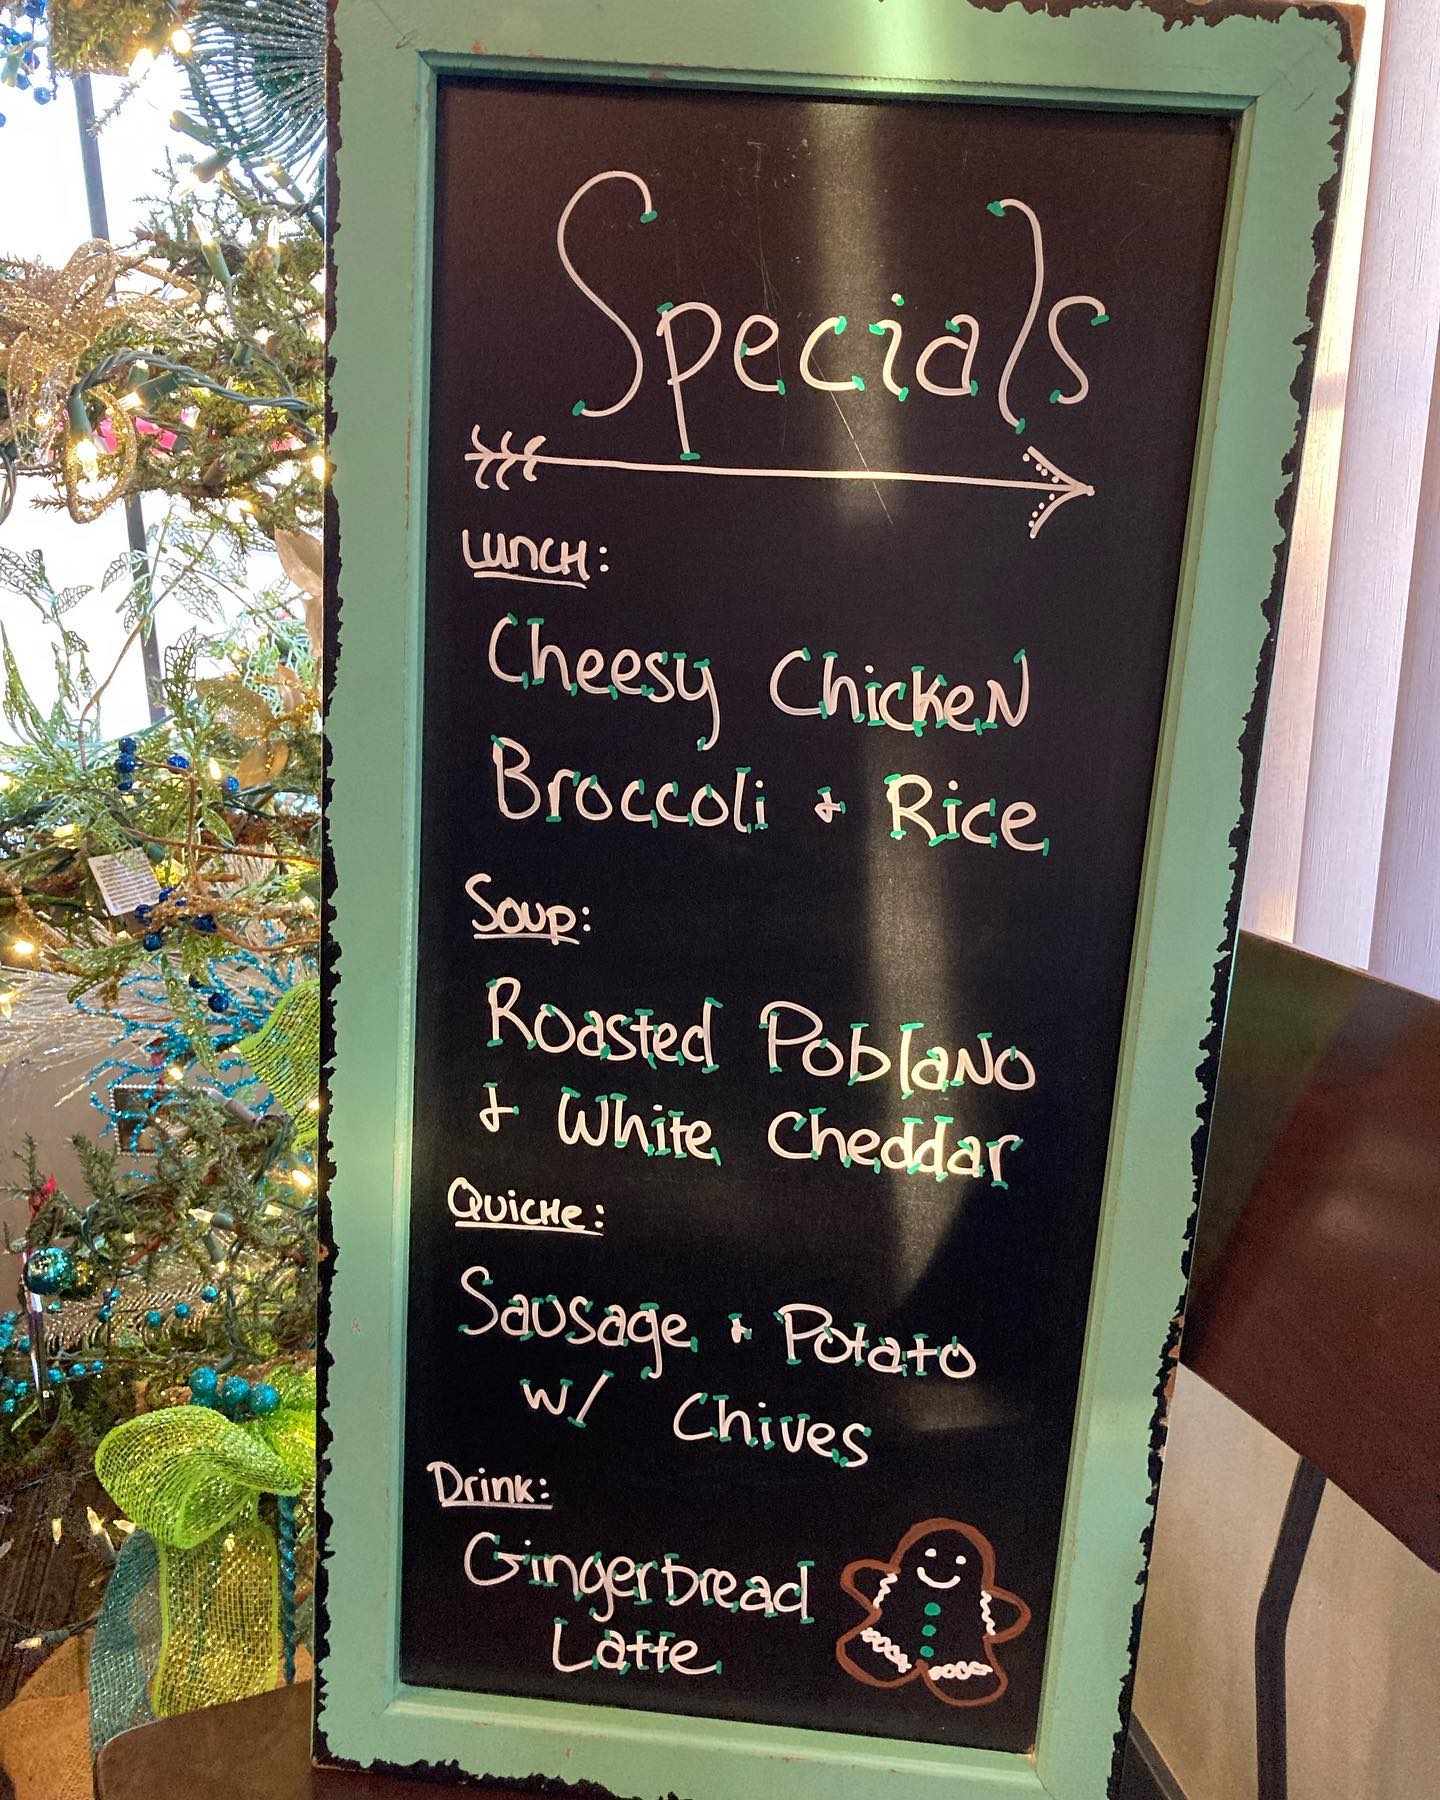 Specials
Lunch:
Cheesy Chicken
Broccoli & Rice
Soup:
Roasted Poblano
& White Cheddar
Quiche:
Sausage & Potato
w/ Chives
Drink:
Gingerbread
Latte